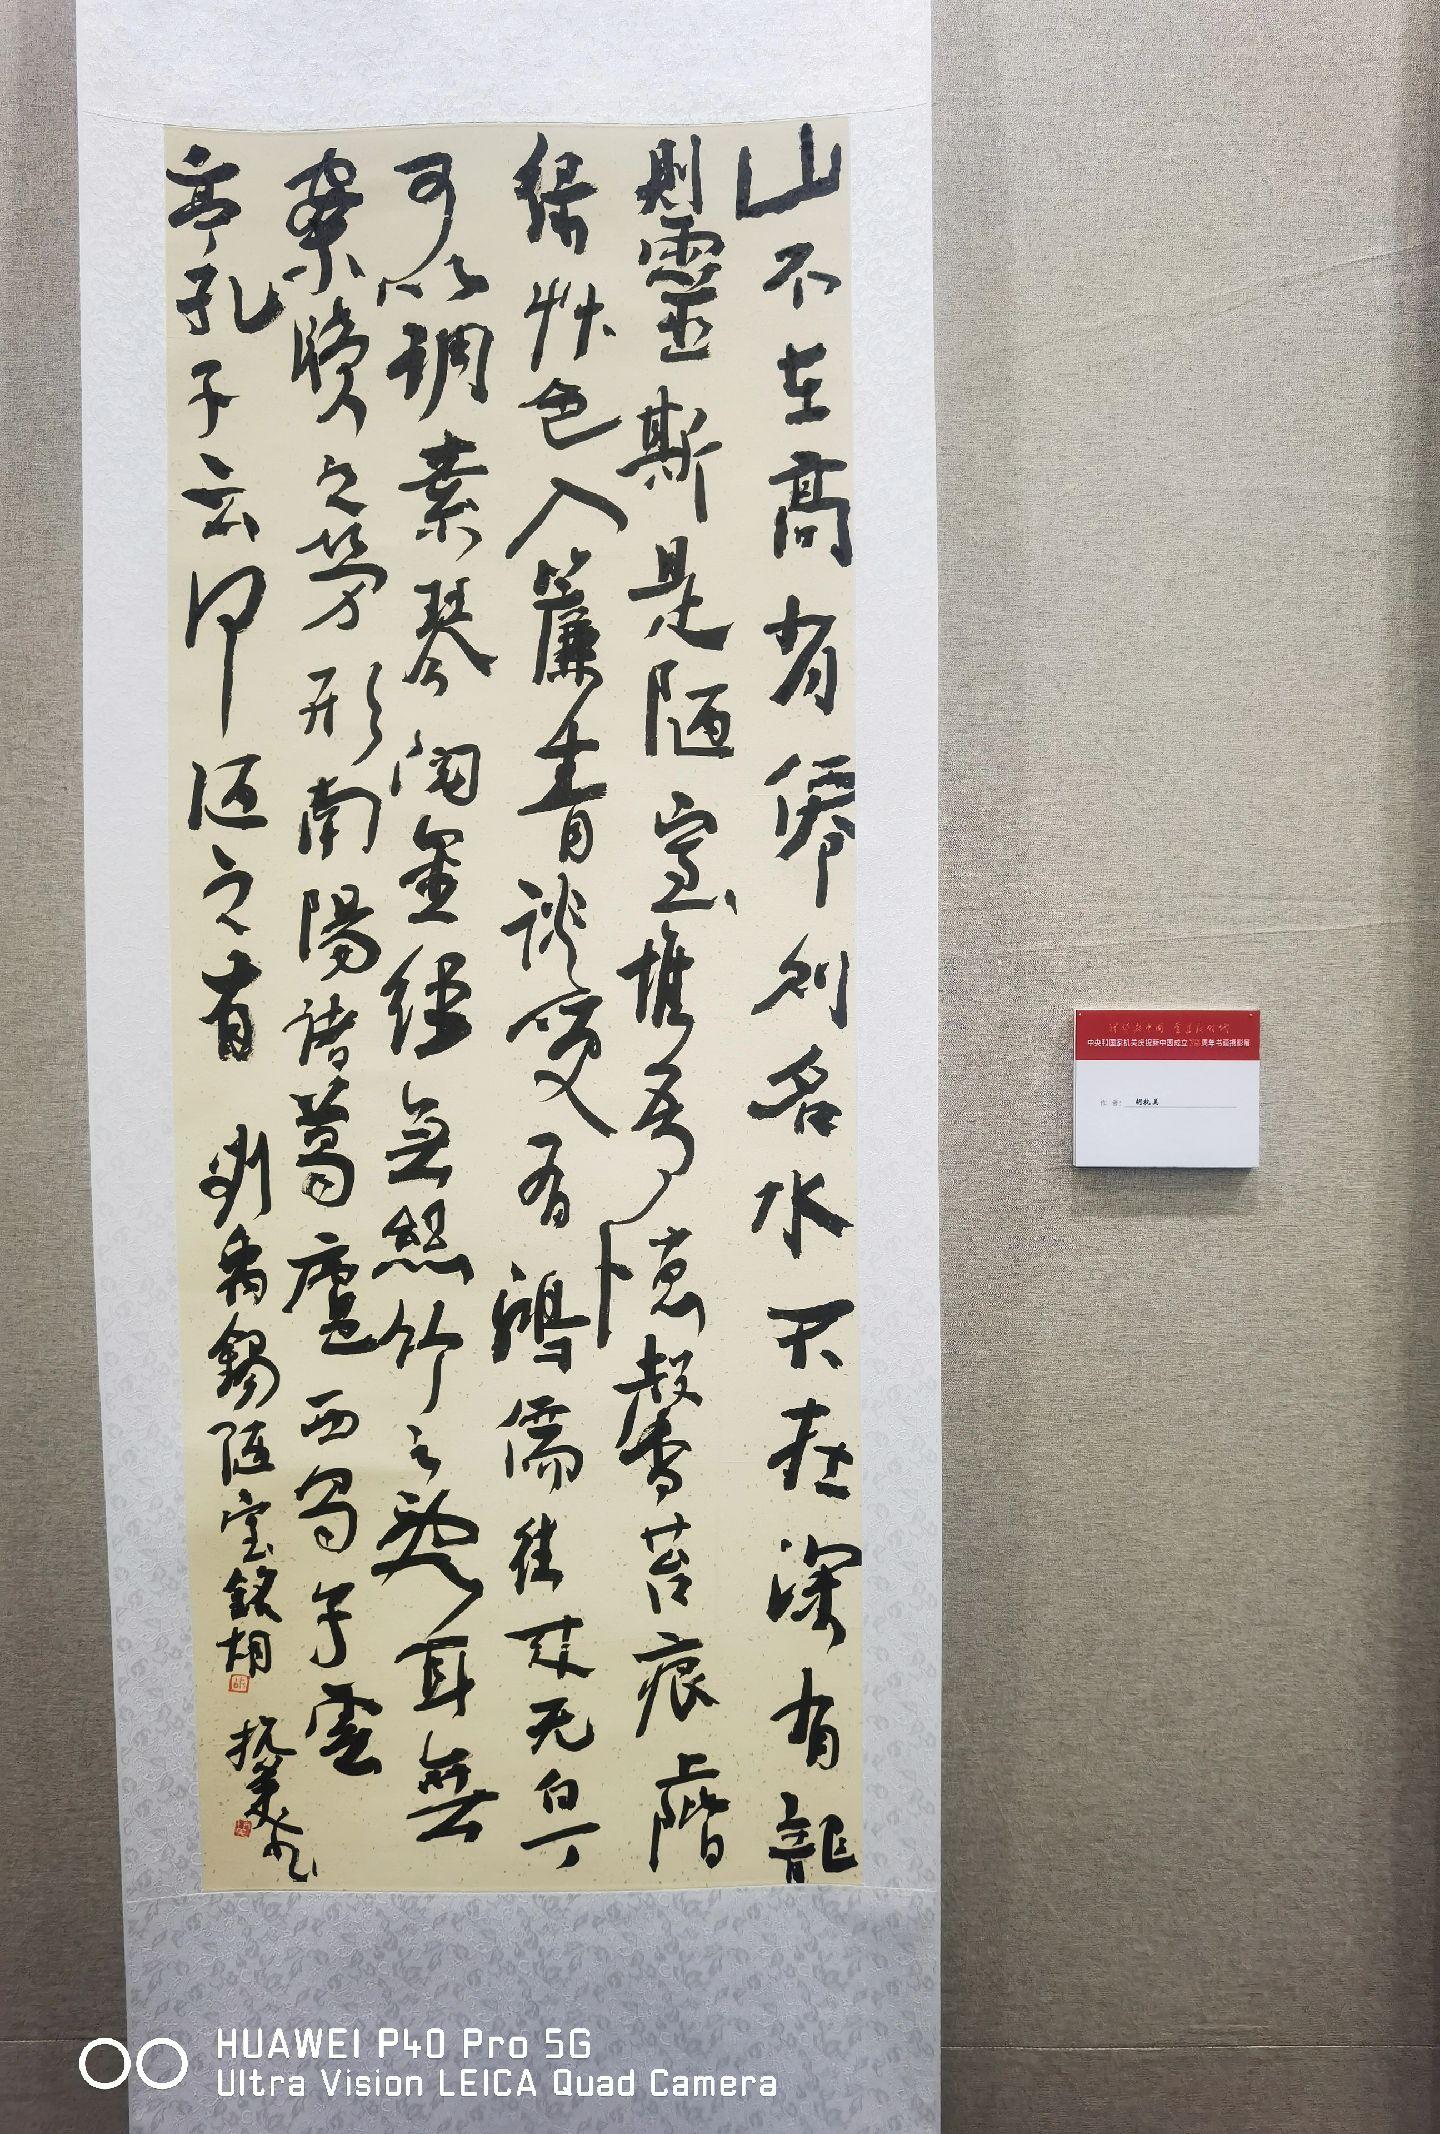 山不在高有僊則名水不在深有龍
則靈斯是陋室惟吾德馨苔痕上階
綠艸色入簾青談笑有鴻儒往來无白丁
可以調素琴閱金經無絲竹之亂耳無
案牘之勞形南陽諸葛廬西蜀子雲
亭孔子云何陋之有 劉禹錫陋室銘胡抗美書
中央和国家机关庆祝新中国成立70周年书画摄影展
作者：胡抗美
HUAWEI P40 Pro 5G
Ultra Vision LEICA Quad Camera